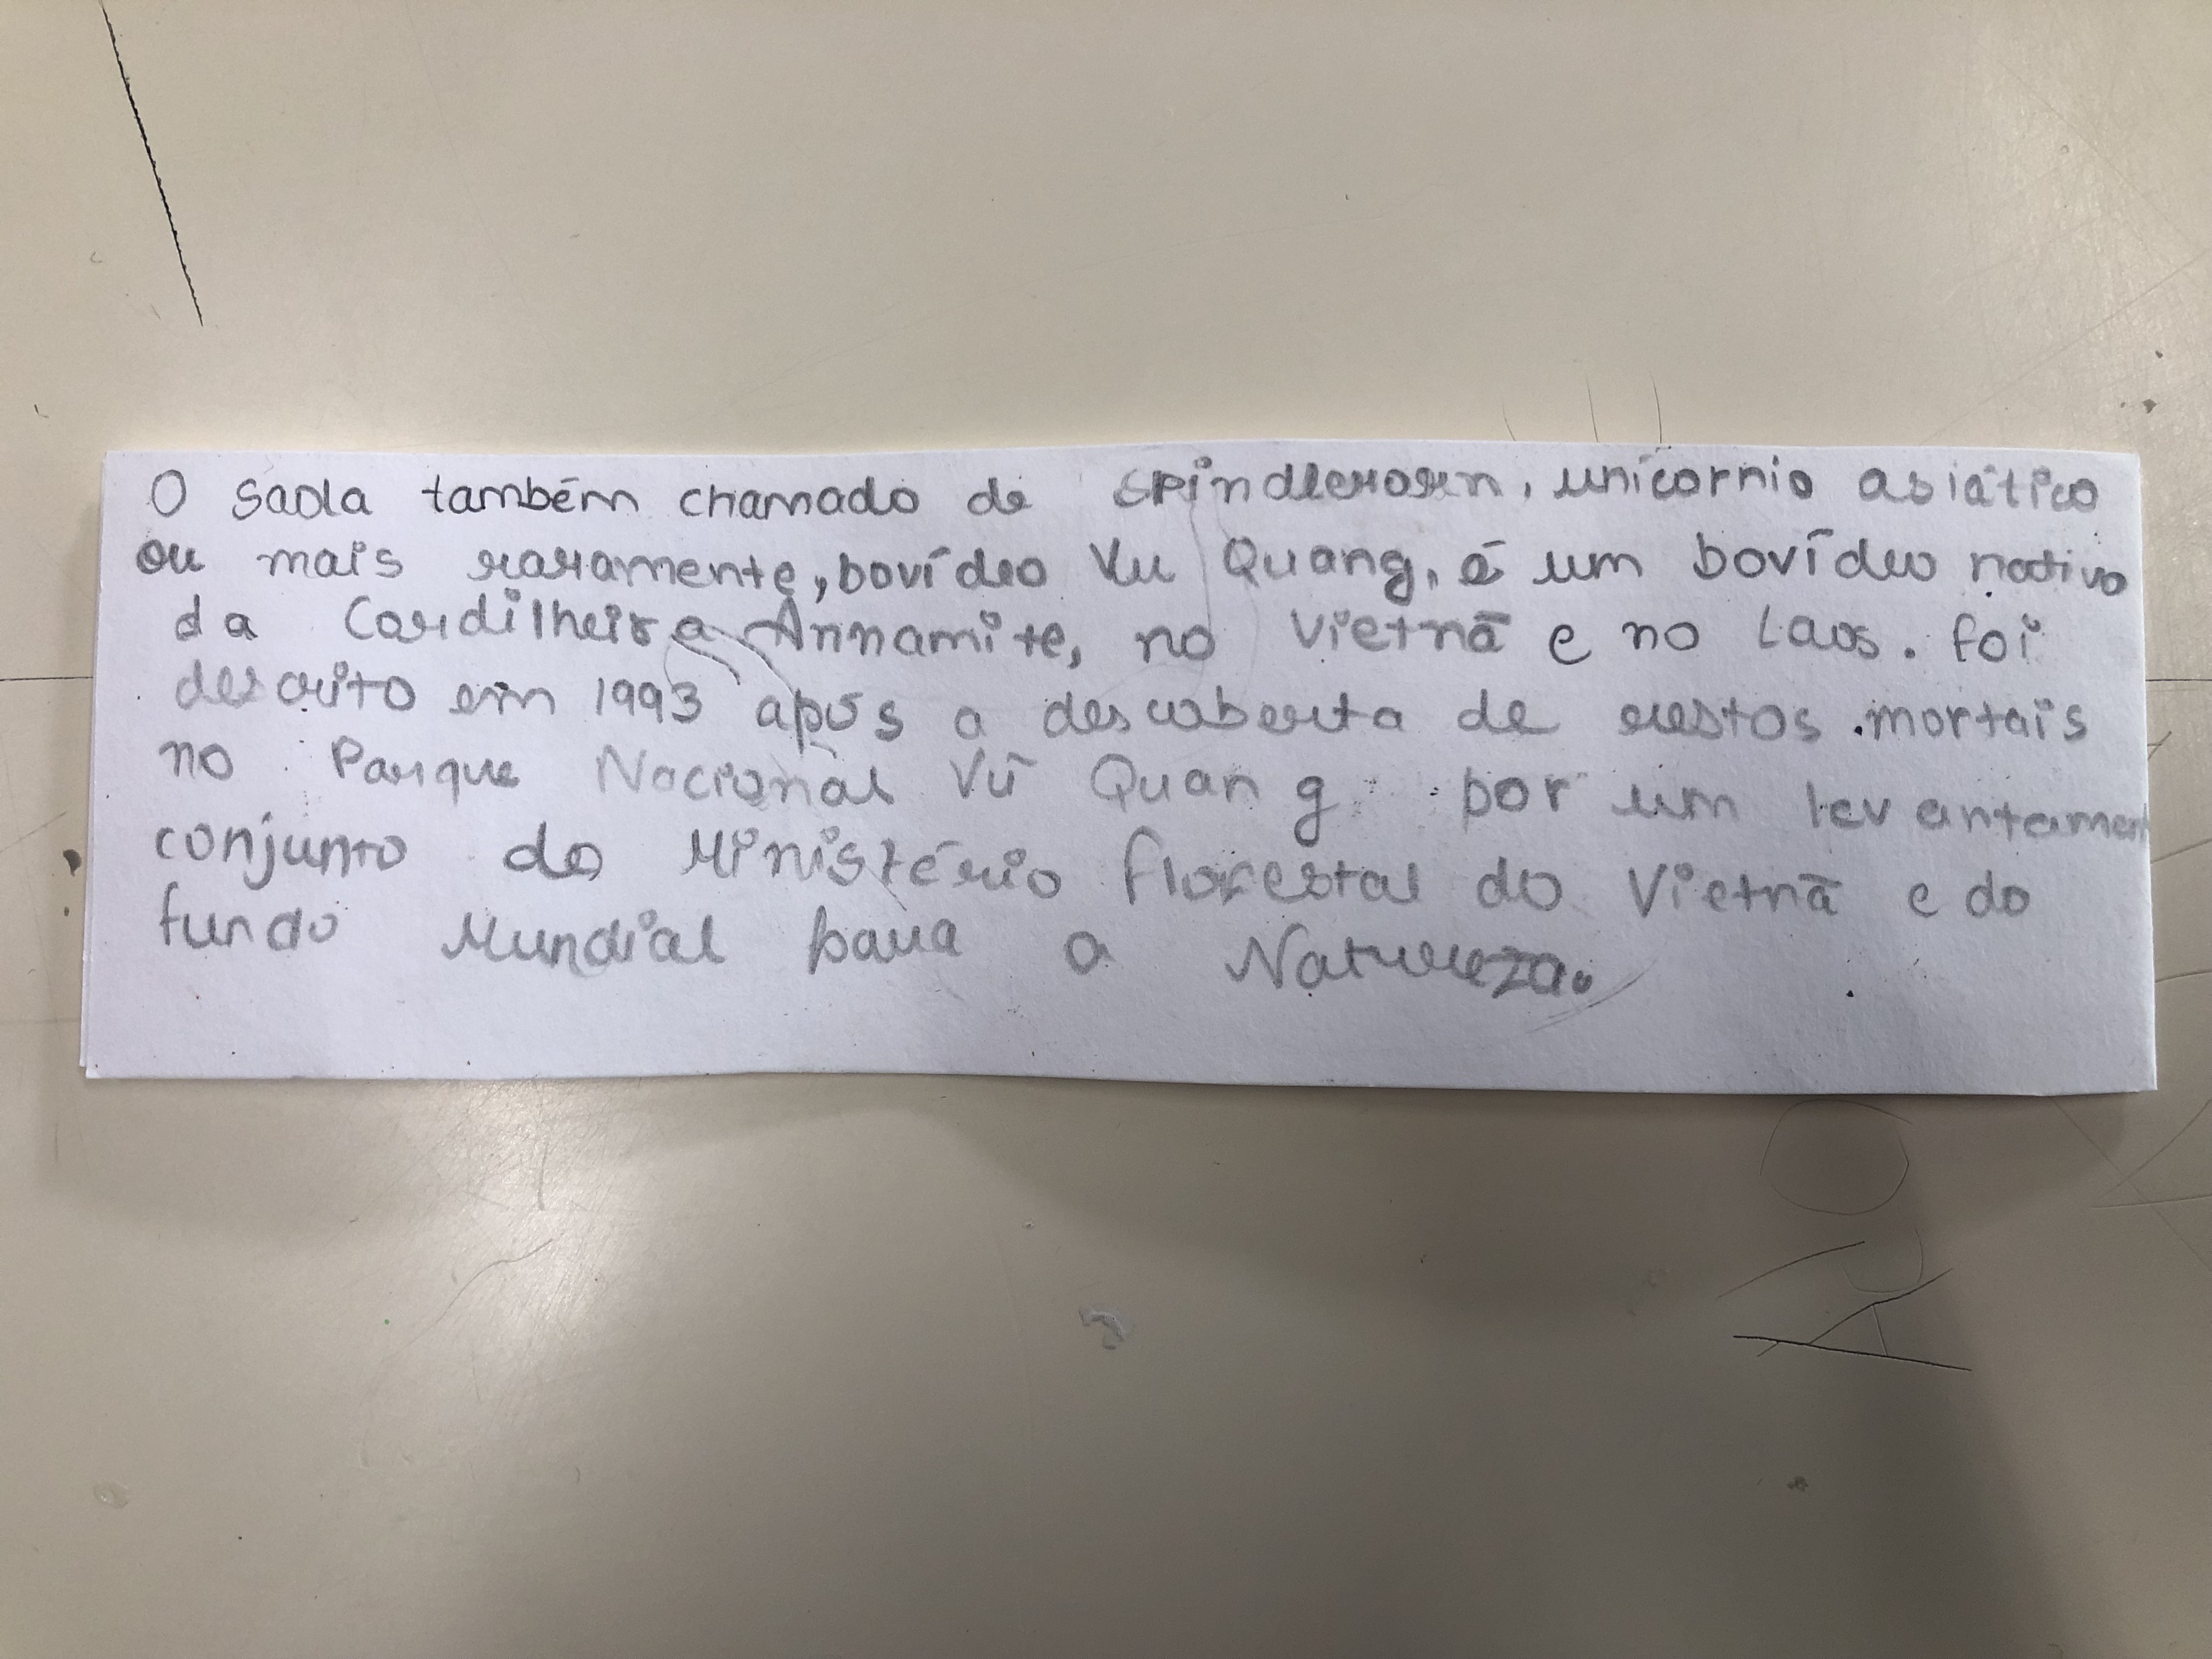 O saola também chamado de spindlerorn, unicornio asiático
ou mais raramente, bovídeo Vu Quang, é um bovídeo nativo
da Cordilheira Annamite, no Vietnã e no Laos. foi
descrito em 1993 após a descoberta de restos mortais
no Parque Nacional Vũ Quang por um levantament
conjunto do Ministério florestal do Vietnã e do
fundo Mundial para a Natureza.